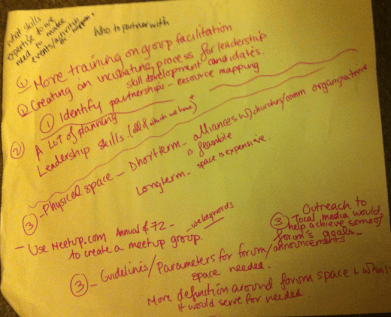 What skills
expertise do we
need to make
events/activities
happen?
Who to partner with
① More training on group facilitation
② Creating an incubating process for leadership
skill development candidates.
① Identify partnerships - resource mapping
② A lot of planning
Leadership skills (all of which we have)
③ - Physical space - Short term - alliances w/ churches/comm organizations
is feasible
Longterm - space is expensive
- Use Meetup.com Annual $72 - webinards
to create a meetup group.
③ Outreach to
local media would
help achieve some of
forum's goals
③ - Guidelines/Parameters for forum/announcements
space needed.
More definition around forum space & what
it would serve for needed